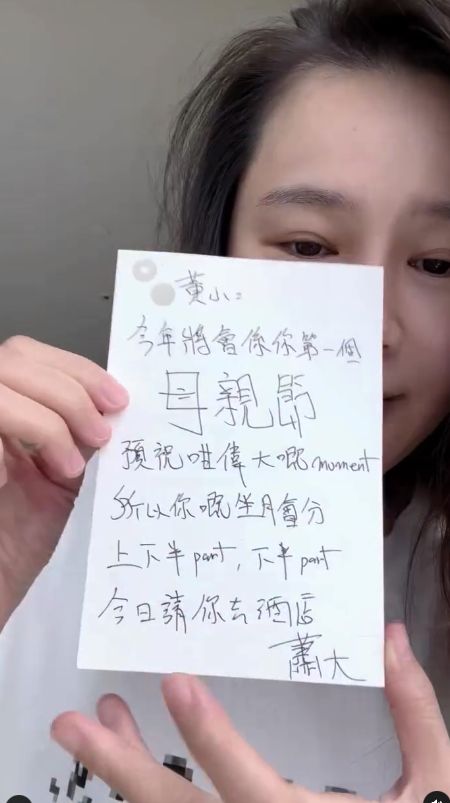 黃小:
今年將會係你第一個
母親節
預祝咁偉大嘅moment
所以你嘅坐月會分
上下半part,下半part
今日請你去酒店
蕭大